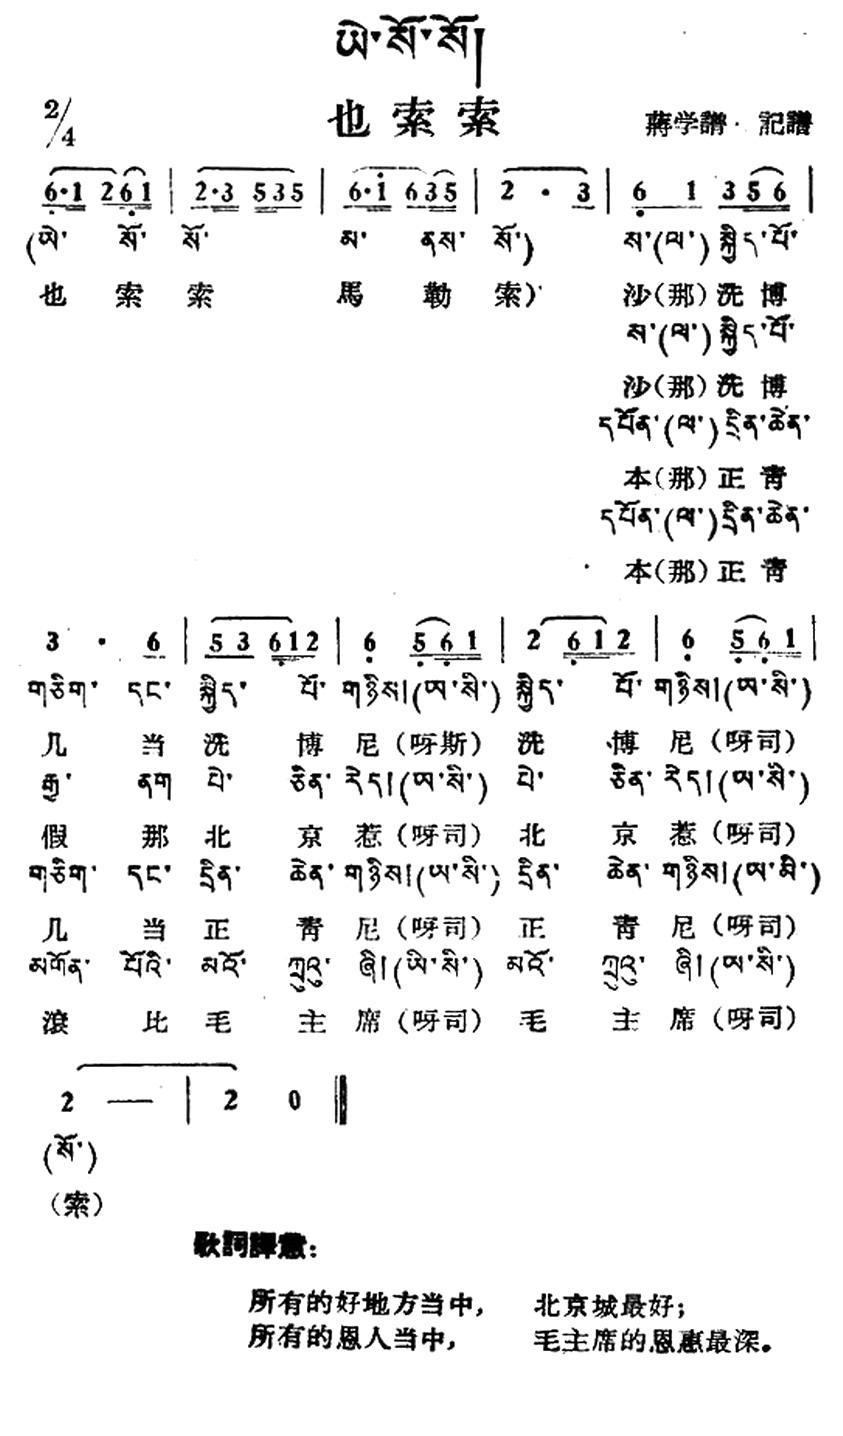 ཨེ་སོ་སོ།
2/4
也索索
蔣学譜·記譜
6·1 2 6 1 | 2·3 5 3 5 | 6·i 6 3 5 | 2 · 3 | 6 1 3 5 6 |
(ཨེ་ སོ་ སོ་ མ་ ནས་ སོ་) ས་(ལ་)སྐྱིད་པོ་
也 索 索 馬 勒 索) 沙(那)洗博
ས་(ལ་)སྐྱིད་པོ་
沙(那)洗博
དཔོན་(ལ་)དྲིན་ཆེན་
本(那)正青
དཔོན་(ལ་)དྲིན་ཆེན་
本(那)正青
3 · 6 | 5 3 6 1 2 | 6 5 6 1 | 2 6 1 2 | 6 5 6 1 |
གཅིག་ དང་ སྐྱིད་ པོ་ གཉིས།(ཨ་སི་) སྐྱིད་ པོ་ གཉིས།(ཨ་སི་)
几 当 洗 博 尼(呀斯) 洗 博 尼(呀司)
རྒྱ་ ནག པེ་ ཅིན་ རེད།(ཨ་སི་) པེ་ ཅིན་ རེད།(ཨ་སི་)
假 那 北 京 惹(呀司) 北 京 惹(呀司)
གཅིག་ དང་ དྲིན་ ཆེན་ གཉིས།(ཨ་སི་) དྲིན་ ཆེན་ གཉིས།(ཨ་སི་)
几 当 正 青 尼(呀司) 正 青 尼(呀司)
མགོན་ པོའི་ མའོ་ ཀྲུའུ་ ཞི།(ཨི་སི་) མའོ་ ཀྲུའུ་ ཞི།(ཨ་སི་)
滾 比 毛 主 席(呀司) 毛 主 席(呀司)
2 — | 2 0 ‖
(སོ་)
(索)
歌詞譯意:
所有的好地方当中, 北京城最好;
所有的恩人当中, 毛主席的恩惠最深。